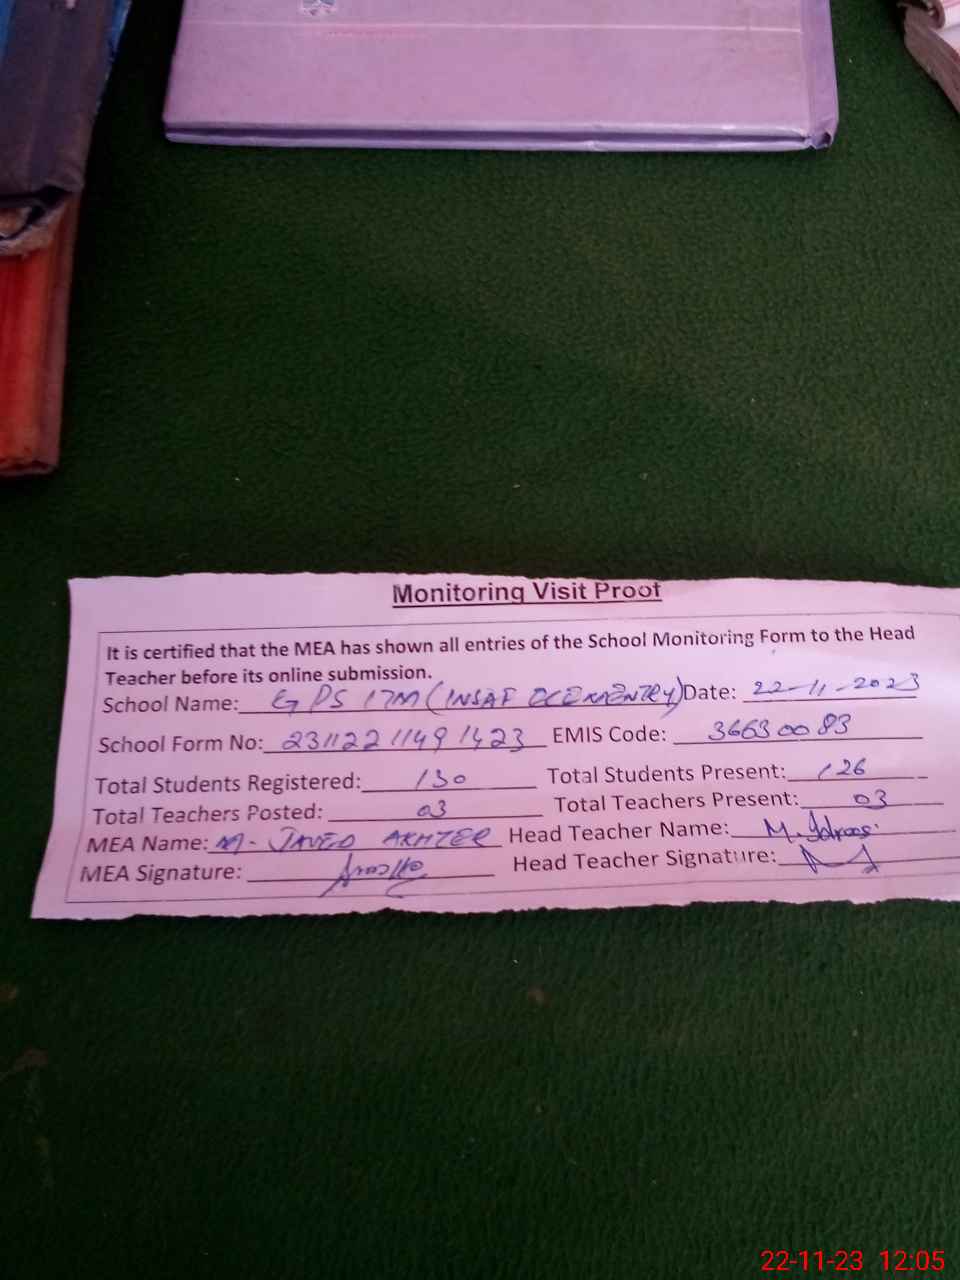 Monitoring Visit Proof
It is certified that the MEA has shown all entries of the School Monitoring Form to the Head
Teacher before its online submission.
School Name: GPS 17M (INSAF ELEMENTRY) Date: 22-11-2023
School Form No: 2311221149 1423 EMIS Code: 36630083
Total Students Registered: 130 Total Students Present: 126
Total Teachers Posted: 03 Total Teachers Present: 03
MEA Name: M. JAVED AKHTER Head Teacher Name: M.
MEA Signature: Head Teacher Signature:
22-11-23 12:05